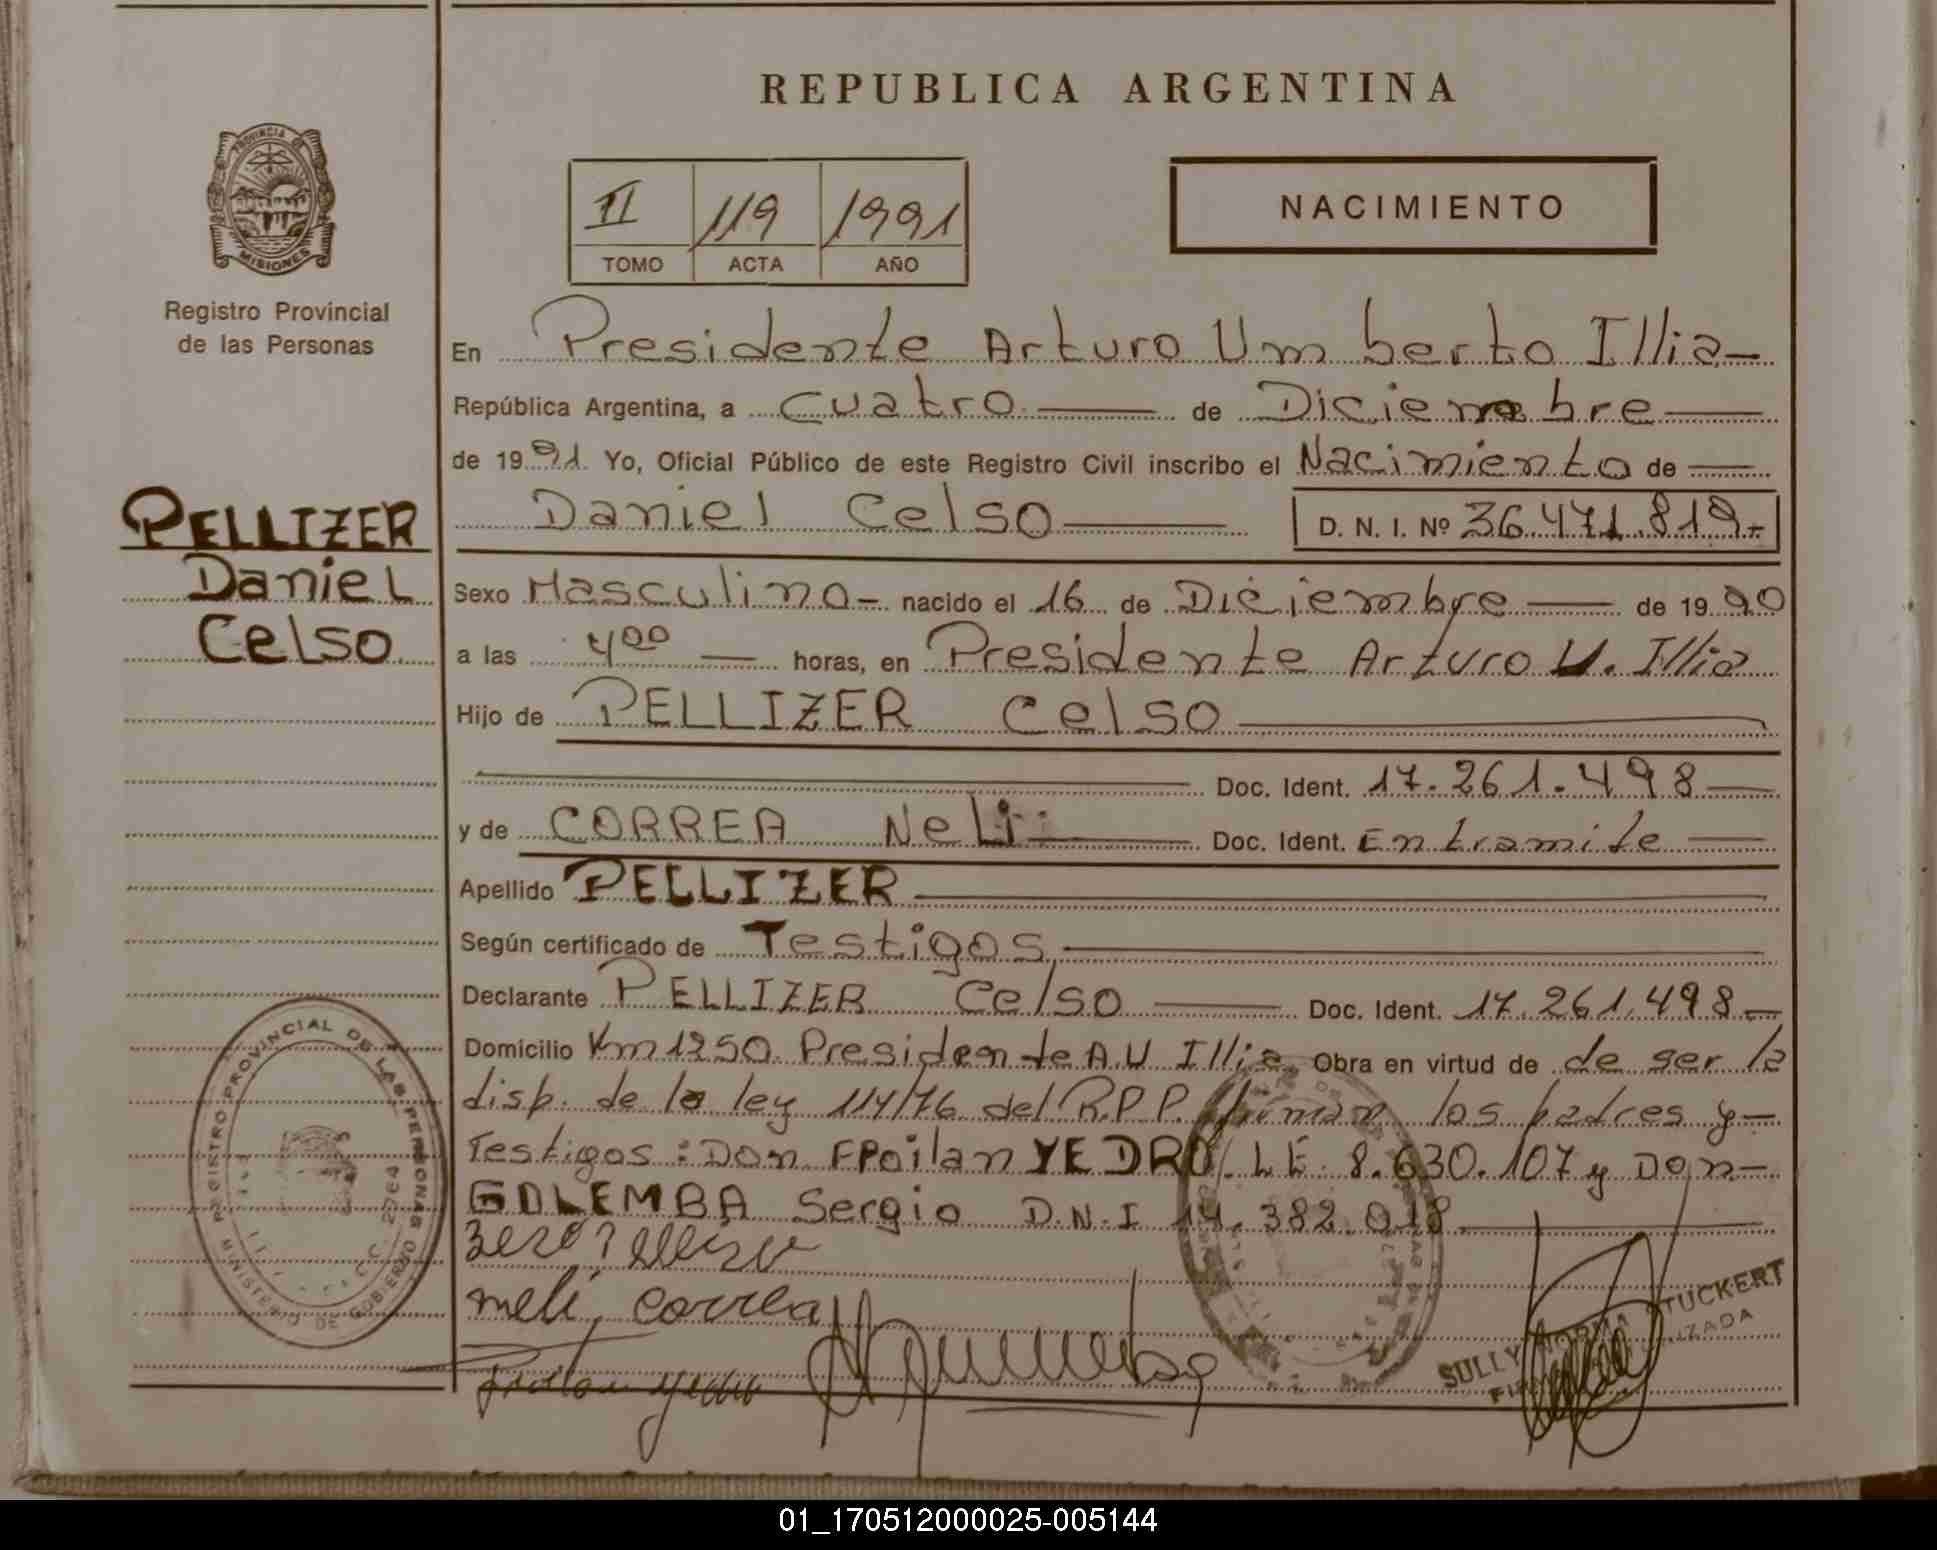 REPUBLICA ARGENTINA
PROVINCIA DE
MISIONES
Registro Provincial
de las Personas
II 119 1991
TOMO ACTA AÑO
NACIMIENTO
En Presidente Arturo Umberto Illia
República Argentina, a cuatro de Diciembre
de 1991 Yo, Oficial Público de este Registro Civil inscribo el Nacimiento de
Daniel Celso D. N. I. Nº 36.471.819.-
PELLIZER
Daniel
Celso
Sexo Masculino- nacido el 16 de Diciembre de 1990
a las 4 00 horas, en Presidente Arturo U. Illia
Hijo de PELLIZER Celso
Doc. Ident. 17.261.498
y de CORREA Neli Doc. Ident. En tramite
Apellido PELLIZER
Según certificado de Testigos
Declarante PELLIZER Celso Doc. Ident. 17.261.498-
Domicilio Km 1250 Presidente A.U Illia Obra en virtud de de ser la
disp. de la ley 114/76 del R.P.P. firman los padres y-
Testigos: Don FRoilan YEDRO. L E 8.630.107 y Don-
GOLEMBA Sergio D.N.I 14.382.018
neli correa
froilan yedro
REGISTRO PROVINCIAL DE LAS PERSONAS
MINISTERIO DE GOBIERNO
SULLY NORMA STUCKERT
01_170512000025-005144